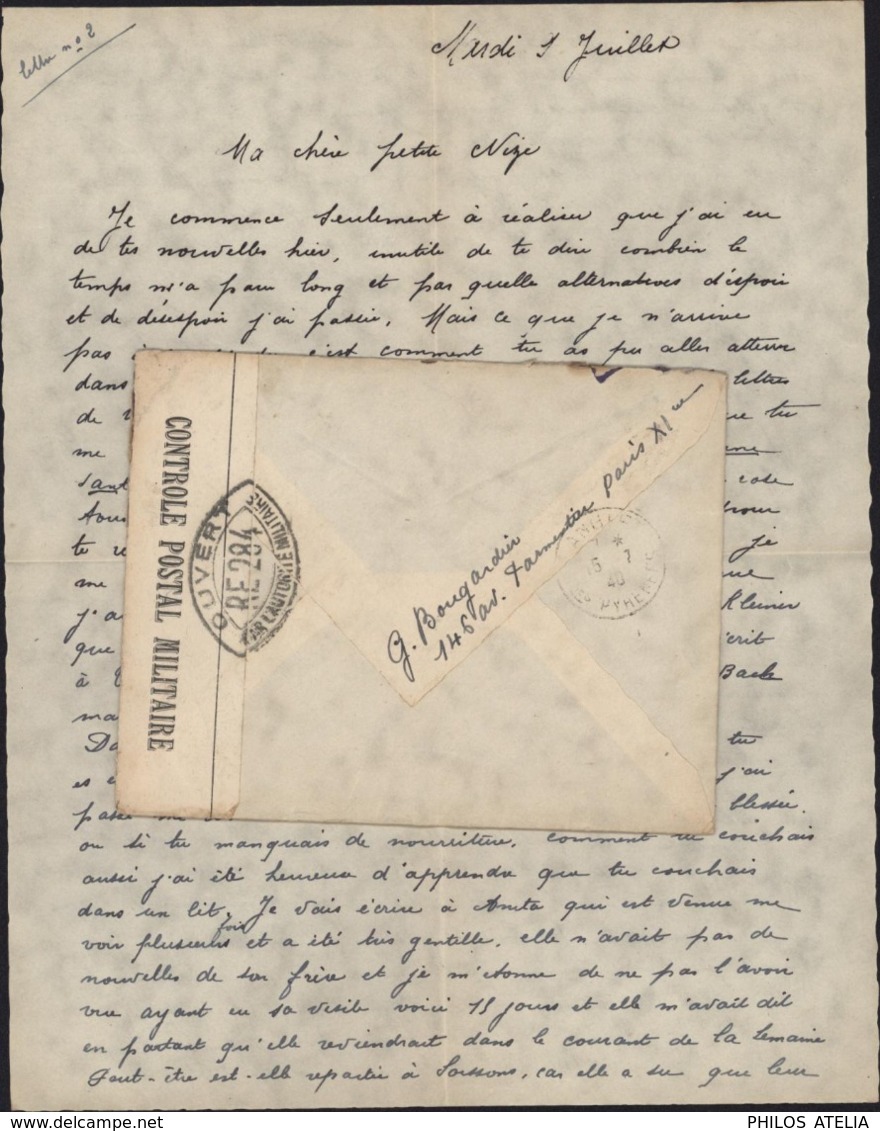 lettre nº 2
Mardi 9 Juillet
Ma chère petite Nize
Je commence seulement à réaliser que j'ai eu
de tes nouvelles hier, inutile de te dire combien le
temps m'a paru long et par quelle alternatives d'espoir
et de désespoir j'ai passée. Mais ce que je n'arrive
pas c'est comment tu as pu aller atterir
dans lettres
de tu
me
sant cose
pour
te je
me que
j'a Kleiner
que écrit
à Back
ma
Da tu
es j'ai
passé blessée.
ou si tu manquais de nourriture, comment tu couchais
aussi j'ai été heureuse d'apprendre que tu couchais
dans un lit. Je vais écrire à Anita qui est venue me
voir plusieurs fois et a été très gentille, elle n'avait pas de
nouvelles de son frère et je m'étonne de ne pas l'avoir
vue ayant eu sa visite voici 15 jours et elle m'avait dit
en partant qu'elle reviendrait dans le courant de la semaine
Peut-être est-elle repartie à Soissons, car elle a su que leur
CONTROLE POSTAL MILITAIRE
OUVERT
RF 284
PAR L'AUTORITÉ MILITAIRE
G. Bougardier
146 av. Parmentier Paris XIe
15 7
40
PYRENEES
PHILOS ATELIA